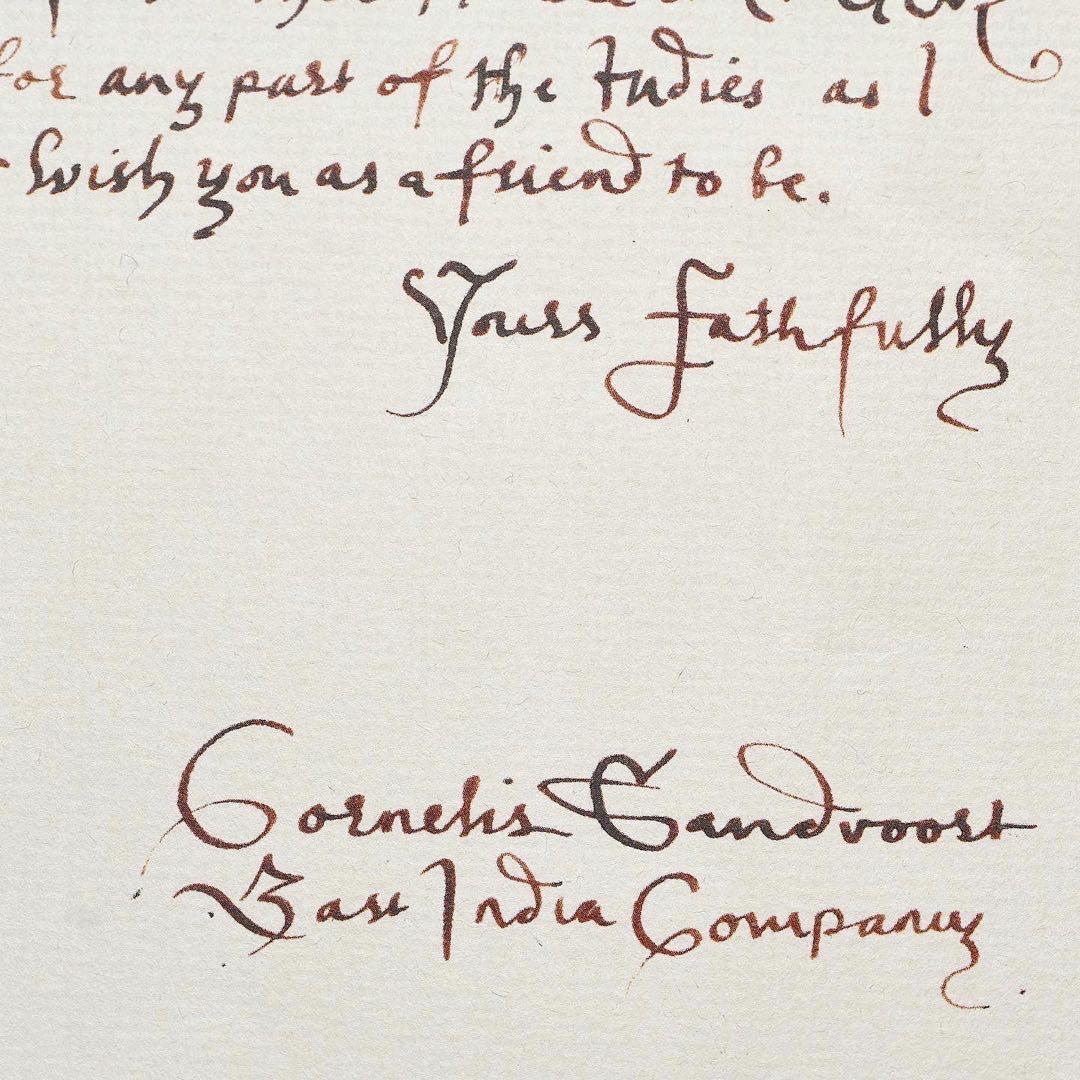 for any part of the Indies as I
wish you as a friend to be.
Yours Fathfully
Cornelis Sandvoort
East India Company